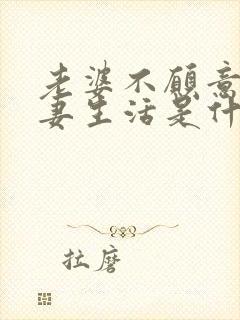 老婆不愿意
妻生活是什
拉磨